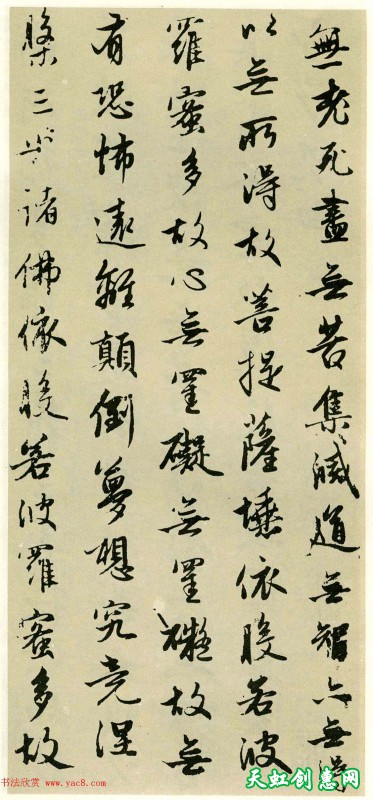 無老死盡無苦集滅道無智亦無得
以無所得故菩提薩埵依般若波
羅蜜多故心無罣礙無罣礙故無
有恐怖遠離顛倒夢想究竟涅
槃三世諸佛依般若波羅蜜多故
书法欣赏 www.yac8.com
天虹创惠网